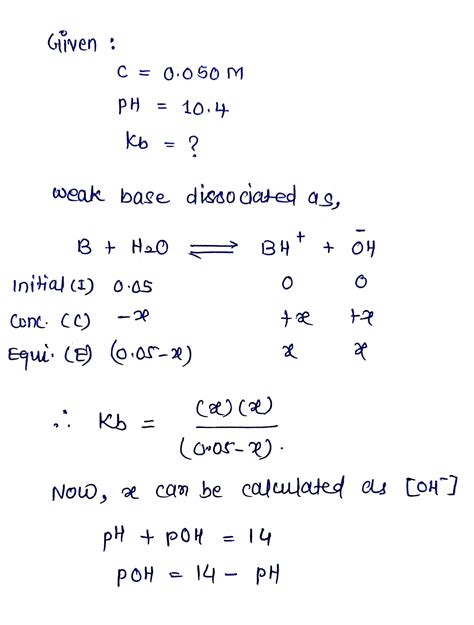 Given :
C = 0.050 M
pH = 10.4
Kb = ?
weak base dissociated as,
B + H2O ⇌ BH⁺ + ŌH
Initial (I) 0.05 0 0
Conc. (C) -x +x +x
Equi. (E) (0.05-x) x x
∴ Kb = (x)(x)
(0.05-x).
Now, x can be calculated as [OH⁻]
pH + pOH = 14
pOH = 14 - pH